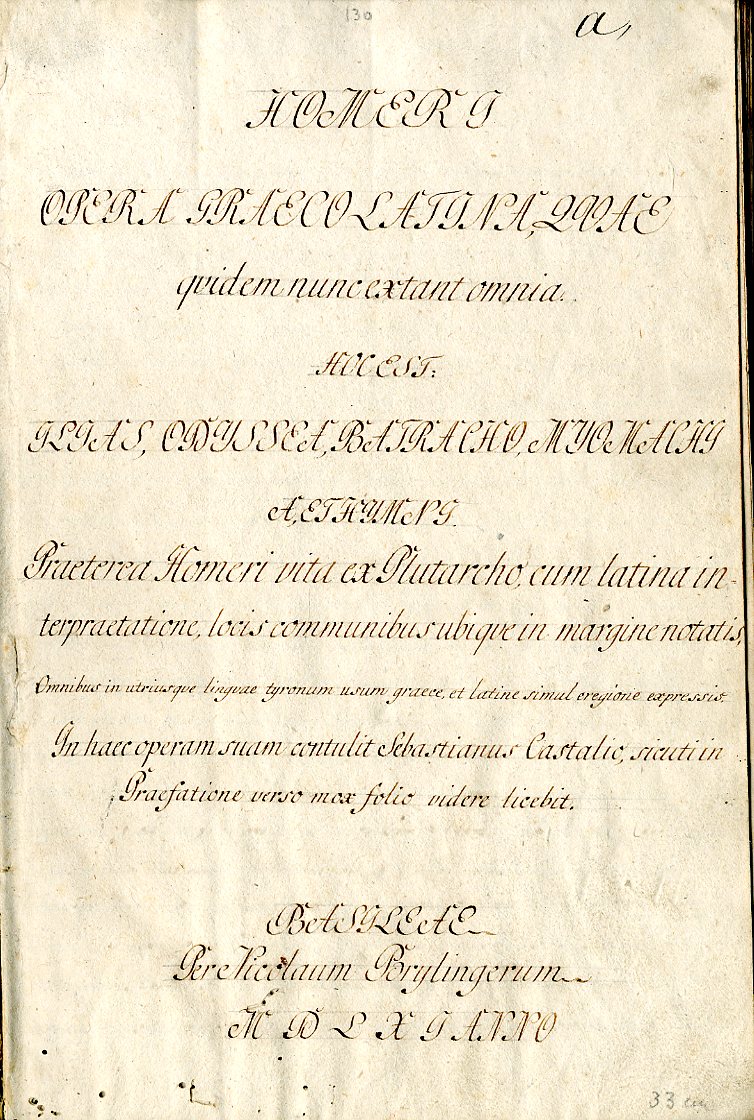 130
a,
HOMERI
OPERA GRAECO LATINA, QVAE
qvidem nunc extant omnia.
HOC EST:
ILIAS, ODYSSEA, BATRACHO, MYOMACHI
A, ET HYMNI.
Praeterea Homeri vita ex Plutarcho, cum latina in-
terpraetatione, locis communibus ubiqve in margine notatis,
Omnibus in utriusqve lingvae tyronum usum graece, et latine simul eregione expressis.
In haec operam suam contulit Sebastianus Castalio, sicuti in
Praefatione verso mox folio videre licebit.
BASILEAE
Per Nicolaum Brylingerum
M D L X I ANNO
33 cm